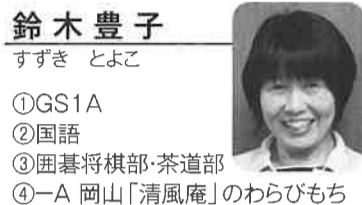 鈴木豊子
すずき とよこ
①GS1A
②国語
③囲碁将棋部·茶道部
④一A 岡山「清風庵」のわらびもち